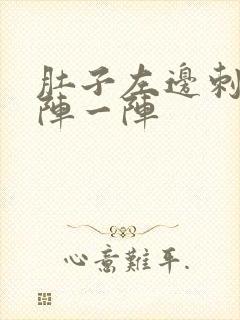 肚子左邊刺
陣一陣
心意難平.